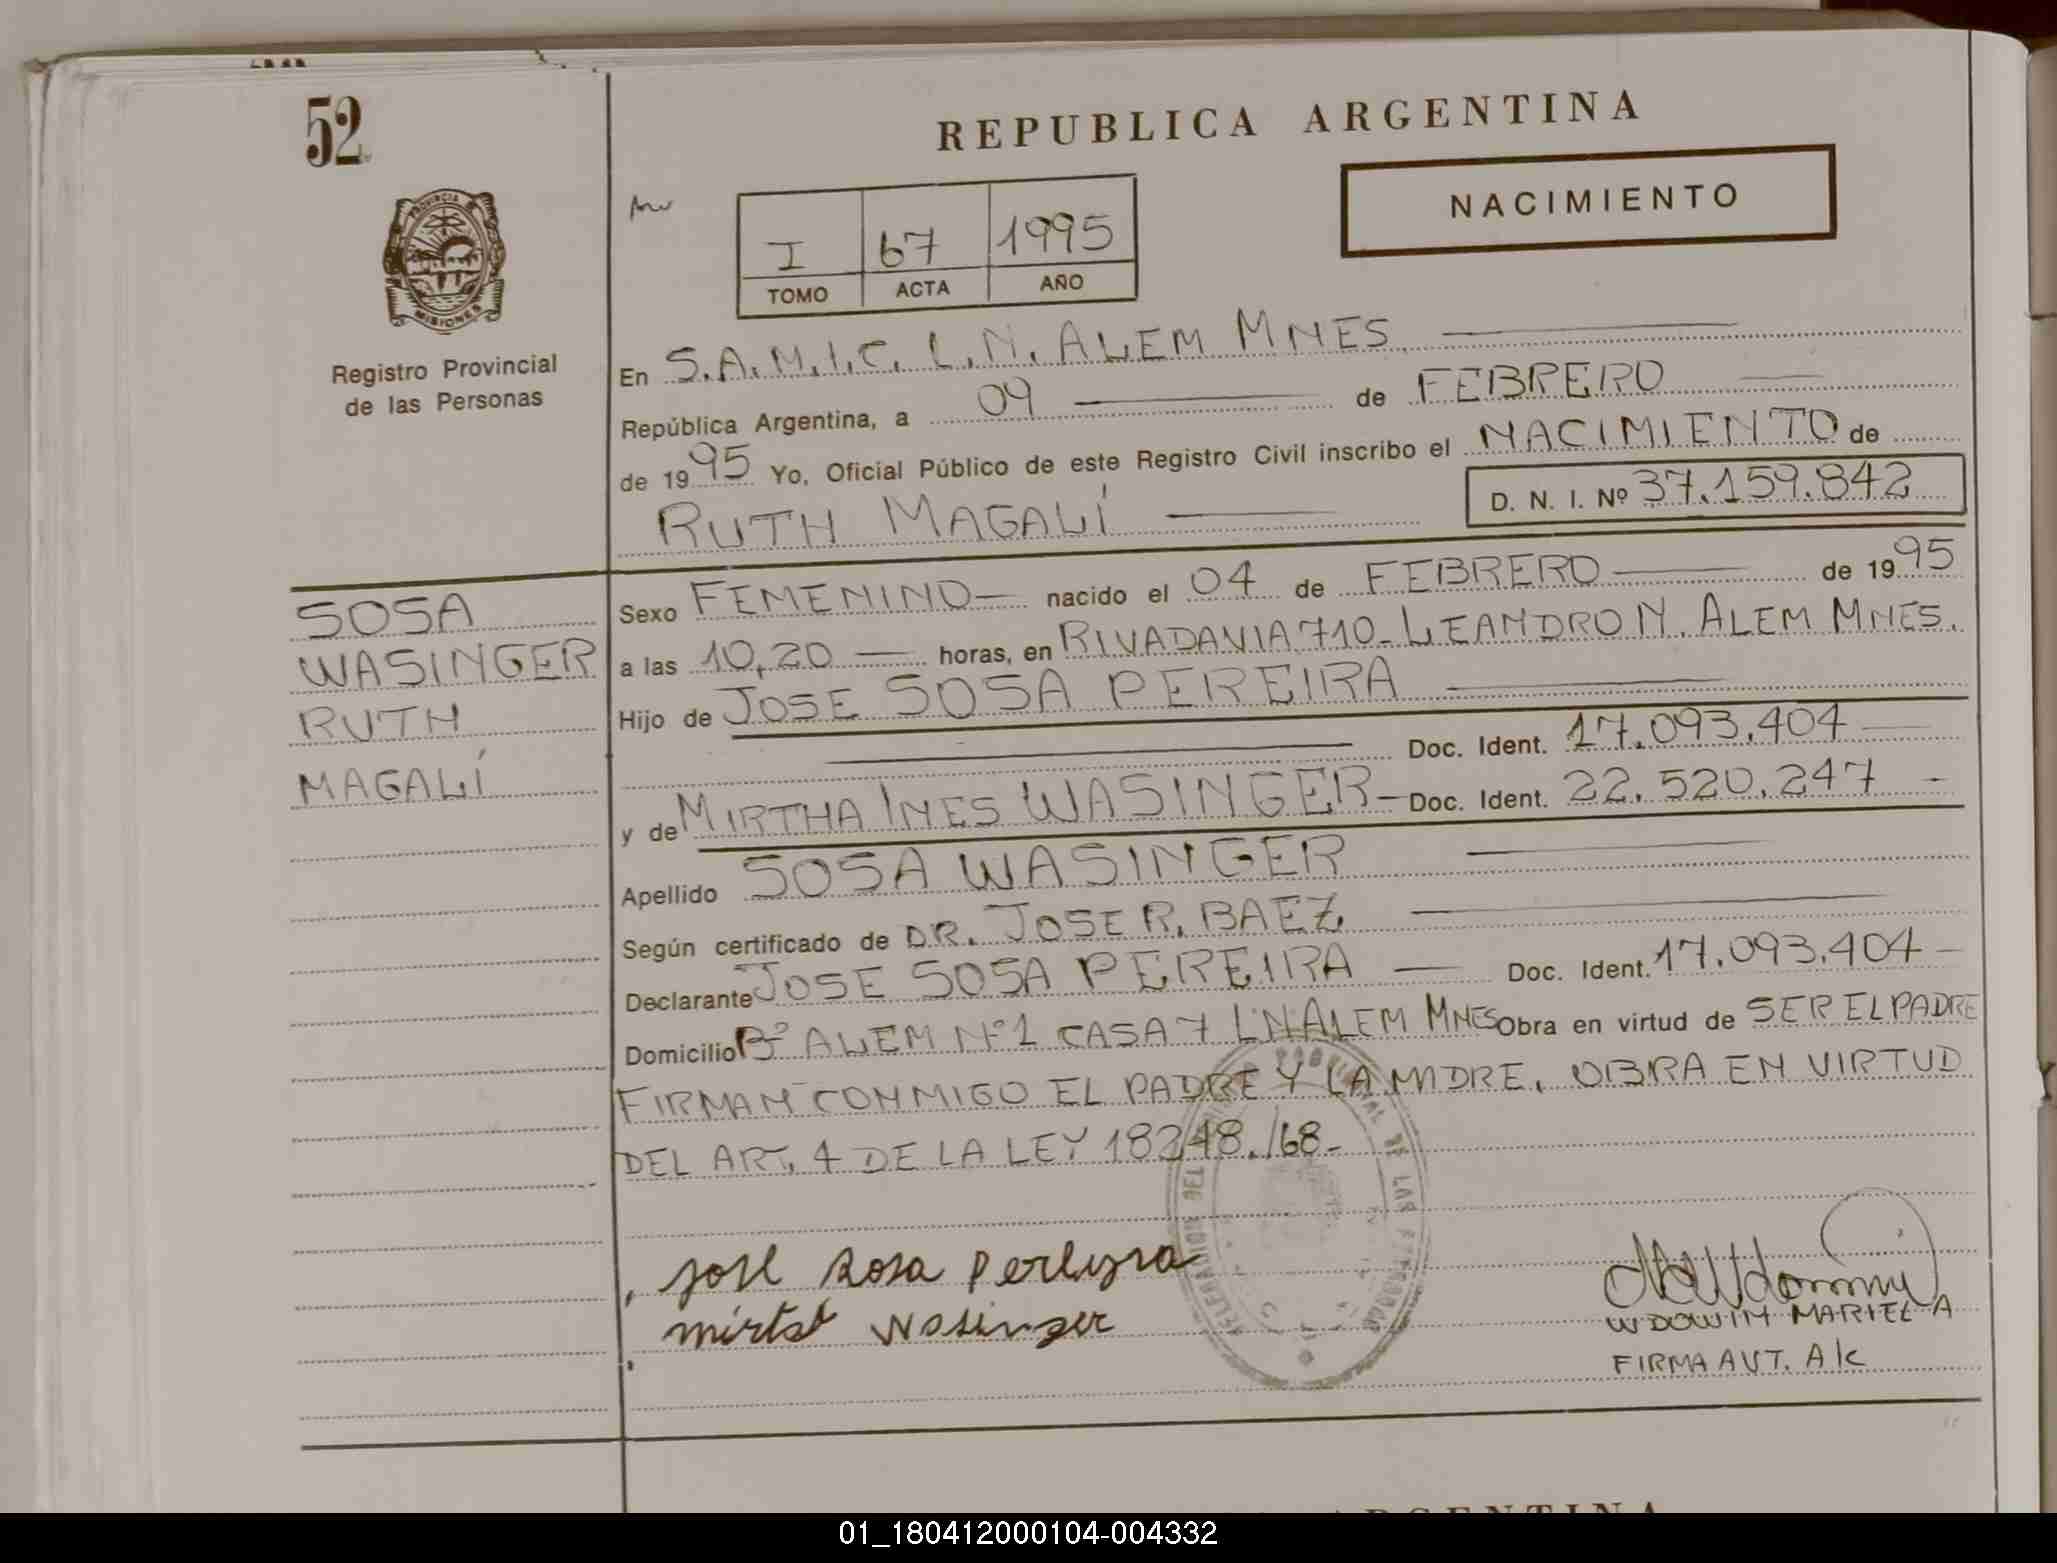 52
REPUBLICA ARGENTINA
NACIMIENTO
PROVINCIA DE
MISIONES
I 67 1995
TOMO ACTA AÑO
Registro Provincial
de las Personas
En S.A.M.I.C. L.N. ALEM MNES.
República Argentina, a 09 de FEBRERO
de 1995 Yo, Oficial Público de este Registro Civil inscribo el NACIMIENTO de
RUTH MAGALÍ D. N. I. Nº 37.159.842
SOSA
WASINGER
RUTH
MAGALÍ
Sexo FEMENINO nacido el 04 de FEBRERO de 1995
a las 10,20 horas, en RIVADAVIA 710-LEANDRO N. ALEM MNES.
Hijo de JOSE SOSA PEREIRA
Doc. Ident. 17.093.404
y de MIRTHA INES WASINGER Doc. Ident. 22.520.247
Apellido SOSA WASINGER
Según certificado de DR. JOSE R. BAEZ
Declarante JOSE SOSA PEREIRA Doc. Ident. 17.093.404
Domicilio Bº ALEM Nº1 CASA 7 L.N ALEM MNES Obra en virtud de SER EL PADRE
FIRMAN CONMIGO EL PADRE Y LA MADRE. OBRA EN VIRTUD
DEL ART. 4 DE LA LEY 18248./68-
DEL REGISTRO PROVINCIAL DE LAS PERSONAS
José Sosa Pereyra
mirta Wasinger
WDOWIN MARIEL A
FIRMA AUT. A/C
ARGENTINA
01_180412000104-004332